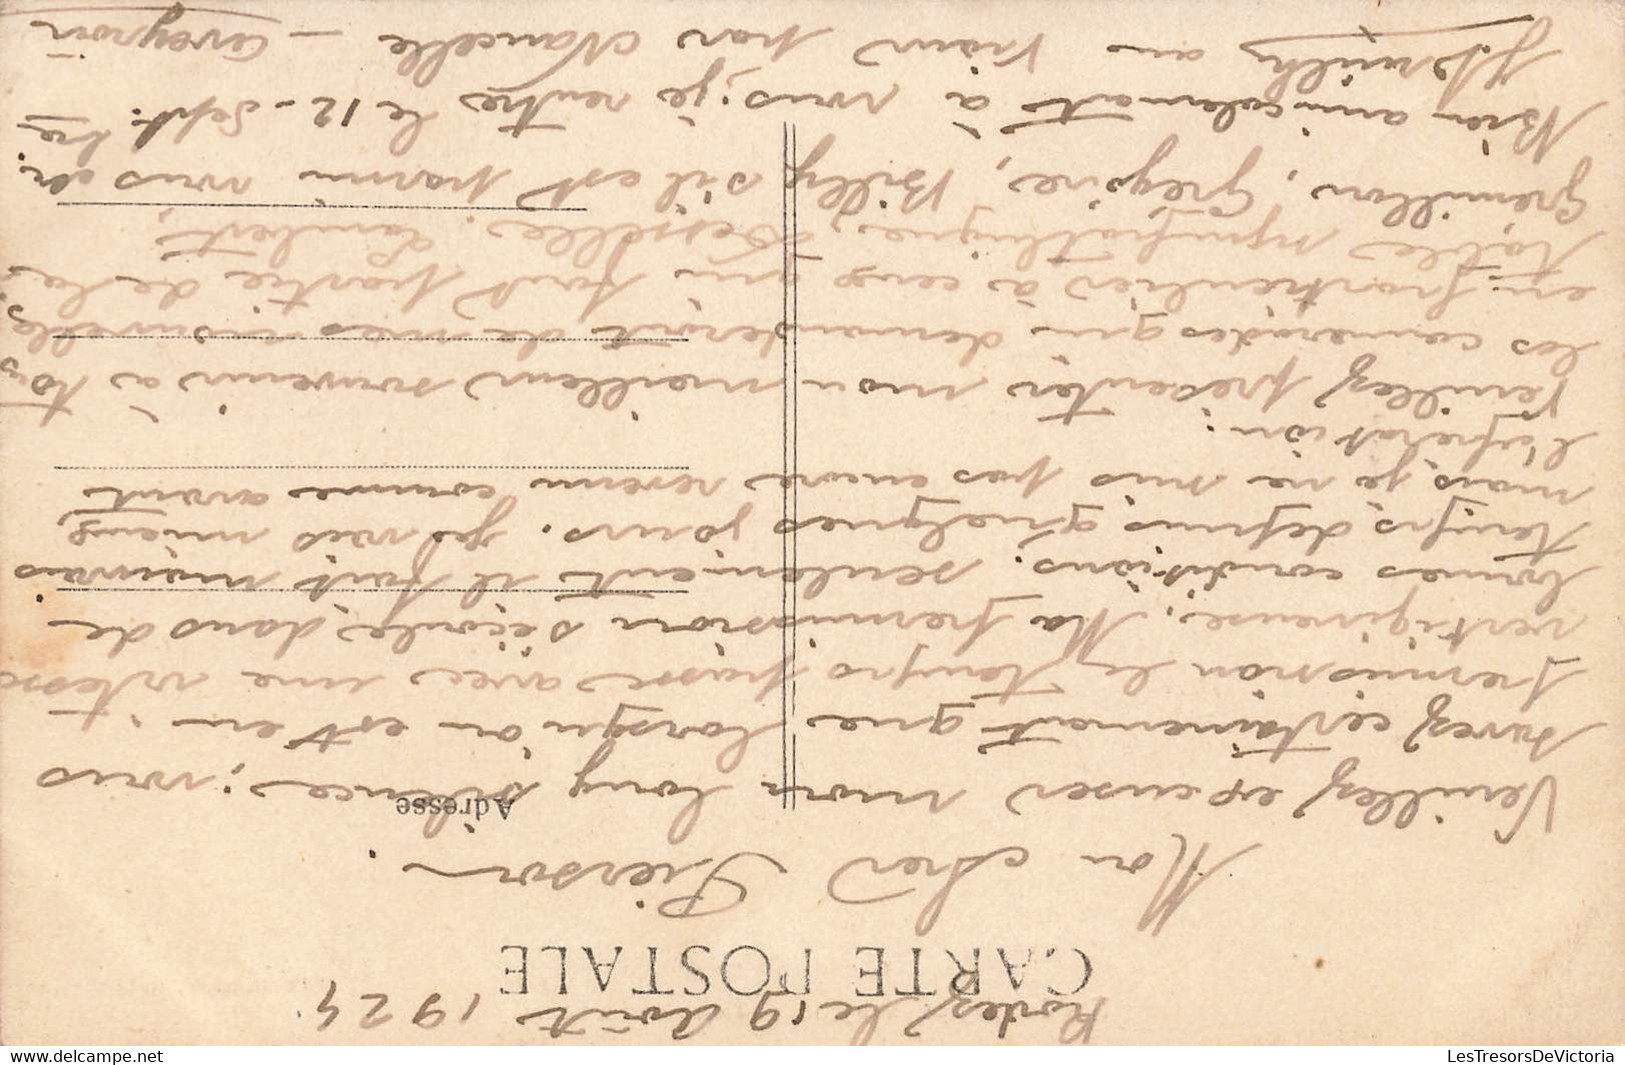 Rodez le 19 Août 1924
CARTE POSTALE
Mon cher Pierson.
Adresse
Veuillez excuser mon long silence ; vous
savez certainement que lorsqu'on est en
permission le temps passe avec une vitesse
vertigineuse. Ma permission s'écoule, dans de
bonnes conditions. seulement il fait mauvais
temps, depuis quelques jours. je vais mieux,
mais, je ne suis pas encore revenu comme avant
l'opération.
Veuillez présenter mon meilleur souvenir à tous
les camarades qui demanderont de mes nouvelles,
en particulier à ceux qui font partie de la
table sympathique, Lambert,
Gremillon, Grégoire, Billy s'il est parmi vous
Bien amicalement à vous, je rentre le 12 - Sept.
au Naucelle - Aveyron
LesTresorsDeVictoria
https://www.delcampe.net